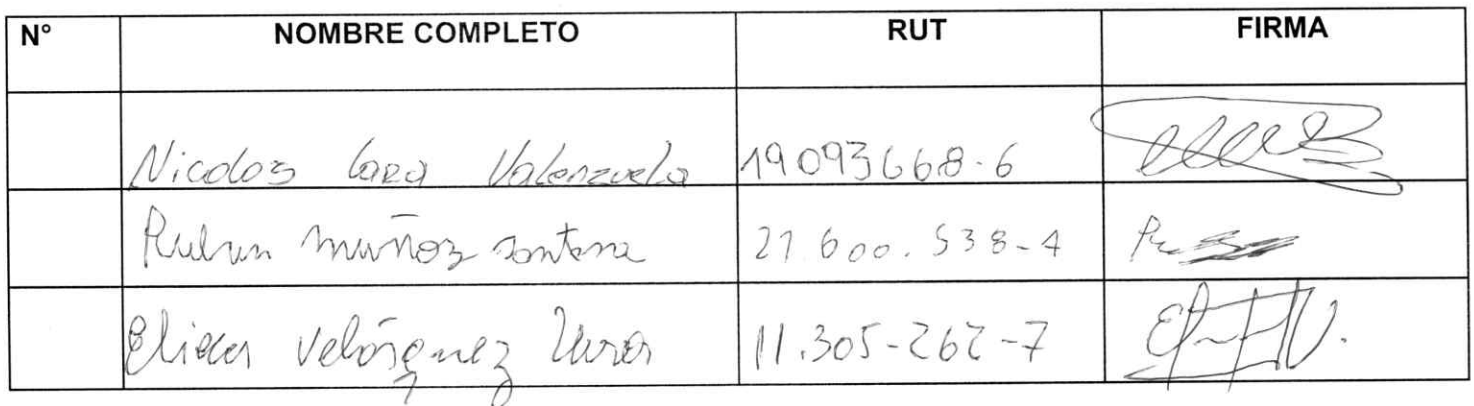 N° NOMBRE COMPLETO RUT FIRMA
Nicolas Lara Valenzuela 19093668-6
Ruben muñoz santana 21.600.538-4
Velásquez 11.305-262-7